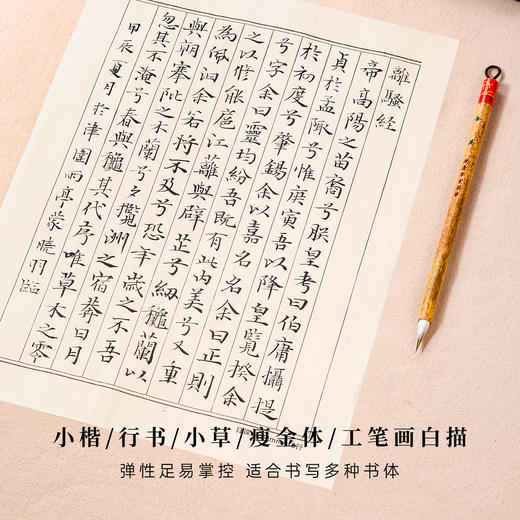 離騷経
帝高陽之苗裔兮朕皇考曰伯庸攝提
貞於孟陬兮惟庚寅吾以降皇覽揆余
於初度兮肇錫余以嘉名名余曰正則
兮字余曰靈均紛吾既有此内美兮又重
之以修能扈江蘺與辟芷兮紉穐蘭以
為佩汩余若將不及兮恐年歲之不吾
與朝搴阰之木蘭兮夕攬洲之宿莽日月
忽其不淹兮春與穐其代序唯草木之零
甲辰夏月於津雨亭蒙曉羽臨
小楷/行书/小草/瘦金体/工笔画白描
弹性足易掌控 适合书写多种书体